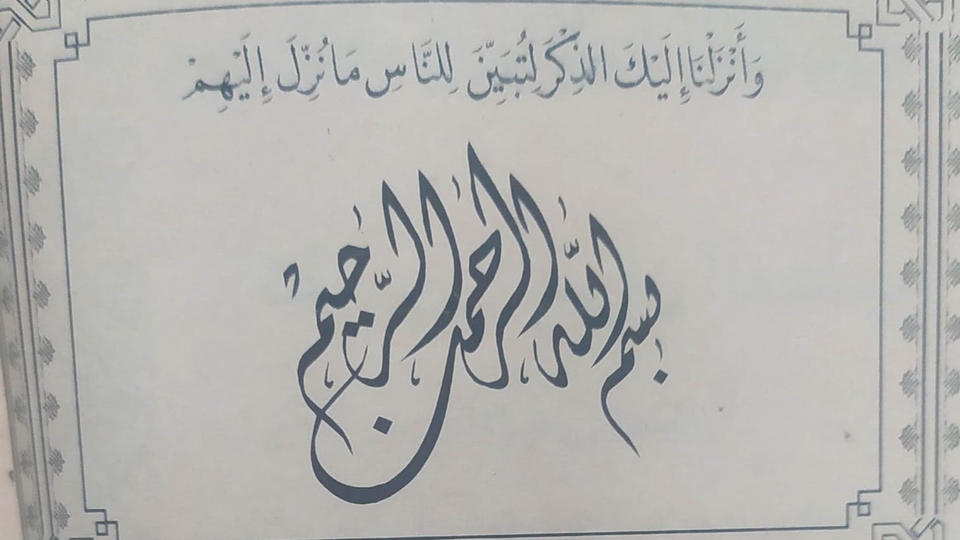 وَأَنْزَلْنَا إِلَيْكَ الذِّكْرَ لِتُبَيِّنَ لِلنَّاسِ مَا نُزِّلَ إِلَيْهِمْ
بسم الله الرحمن الرحيم